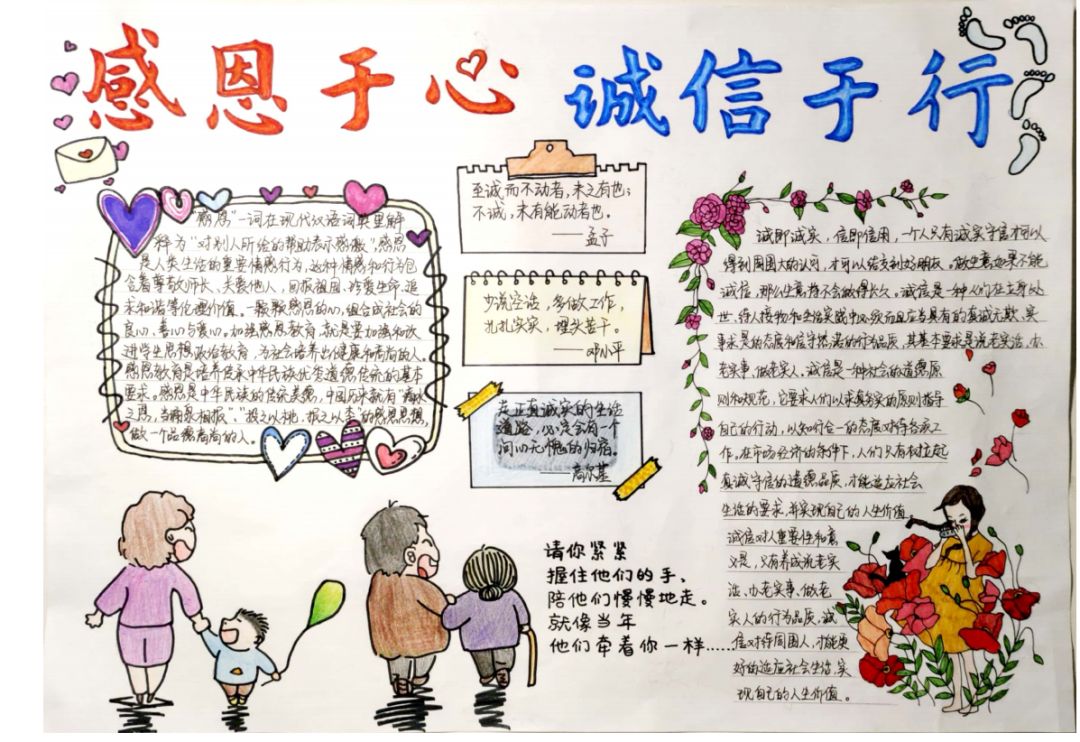 感恩于心 诚信于行
"感恩"一词在现代汉语词典里解
释为"对别人所给的帮助表示感激"。感恩
是人类生活的重要情感行为，这种情感和行为包
含着尊敬师长、关爱他人，回报祖国、珍爱生命、追
求和谐等伦理价值。一颗颗感恩的心，组合成社会的
良心、善心与爱心。加强感恩教育，就是要加强和改
进学生思想政治教育，为社会培养出健康和高尚的人。
感恩教育是培养民族优秀道德传统的基本
要求。感恩是中华民族的传统美德，中国历来就有"滴水
之恩，当涌泉相报"、"投之以桃，报之以李"的感恩思想，
做一个品德高尚的人。
至诚而不动者，未之有也；
不诚，未有能动者也。
——孟子
少说空话，多做工作，
扎扎实实，埋头苦干。
——邓小平
走正直诚实的生活
道路，必定会有一个
问心无愧的归宿。
——高尔基
请你紧紧
握住他们的手、
陪他们慢慢地走。
就像当年
他们牵着你一样……
诚即诚实，信即信用，一个人只有诚实守信才可以
得到周围人的认可，才可以结交到好朋友。做生意如果不能
诚信，那么生意将不会做得长久。诚信是一种人们在立身处
世、待人接物和生活实践中必须而且应当具有的真诚无欺、实
事求是的态度和信守然诺的行为品质，其基本要求是说老实话，办
老实事、做老实人。诚信是一种社会的道德原
则和规范，它要求人们以求真务实的原则指导
自己的行动，以知行合一的态度对待各项工
作。在市场经济的条件下，人们只有树立起
真诚守信的道德品质，才能适应社会
生活的要求，并实现自己的人生价值。
诚信对人重要性和意
义是，只有养成说老实
话、办老实事、做老
实人的行为品质，诚
信对待周围人，才能更
好的适应社会生活，实
现自己的人生价值。